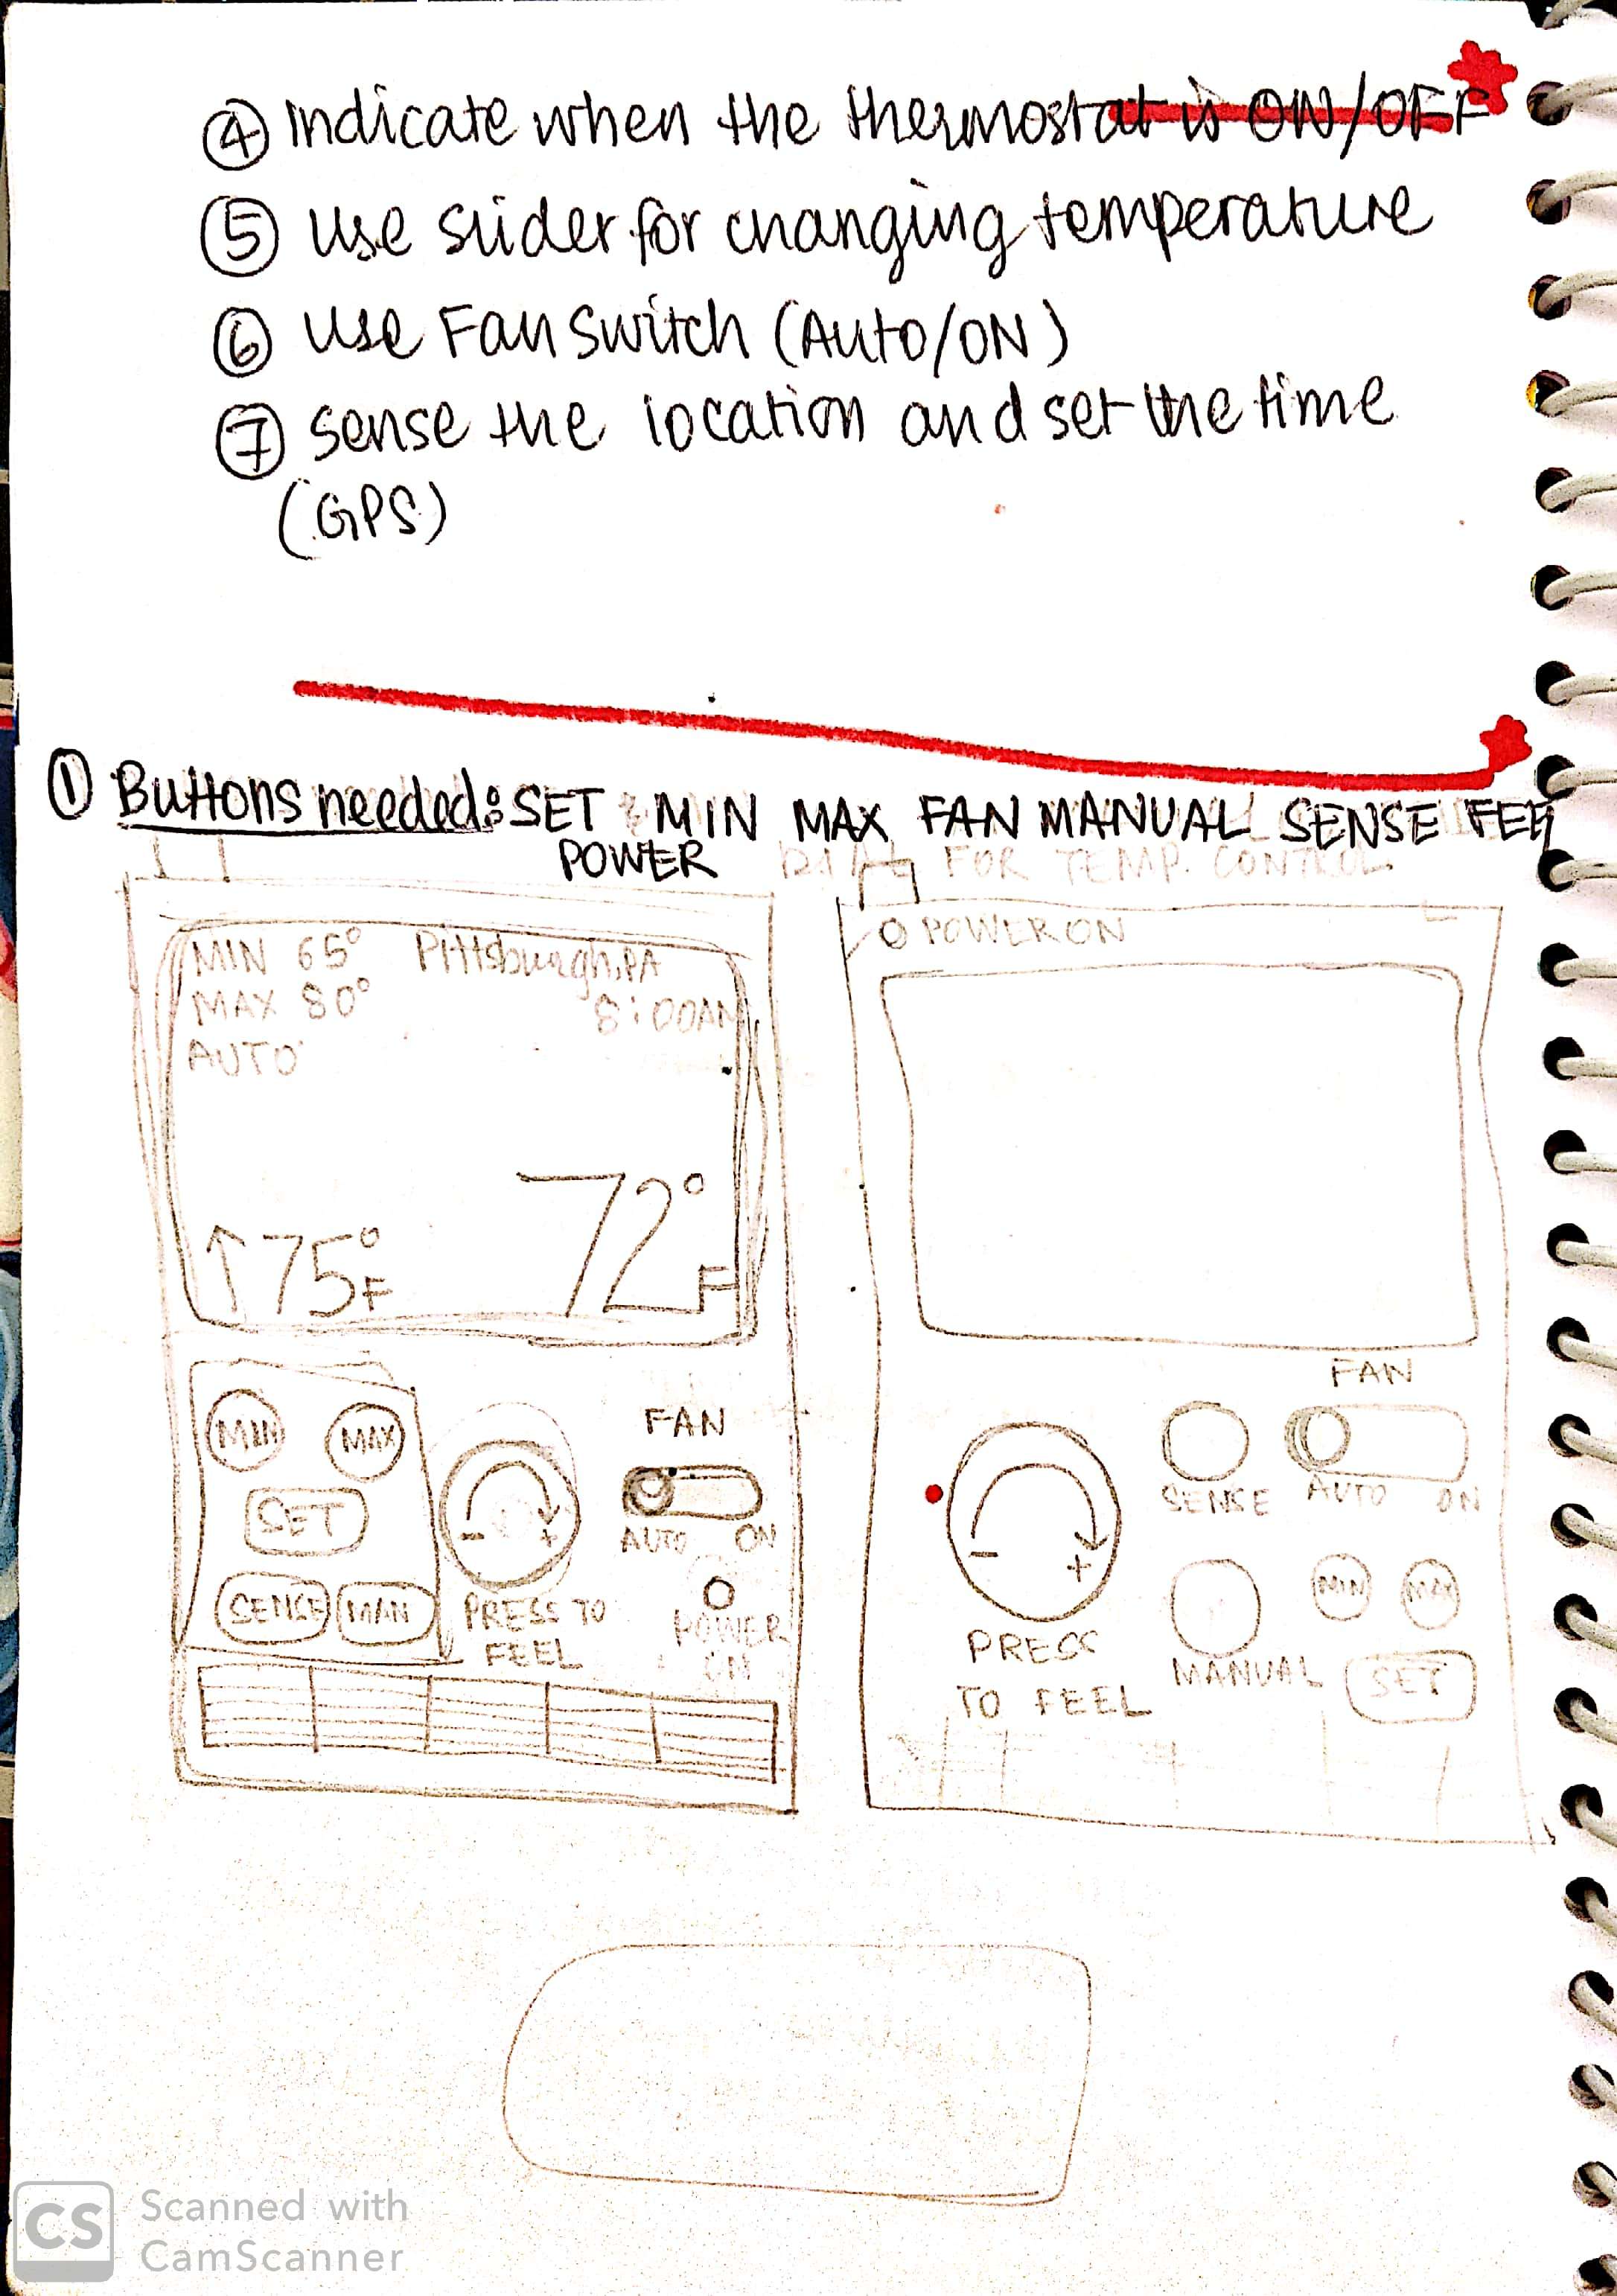 ④ Indicate when the thermostat is ON/OFF
⑤ Use slider for changing temperature
⑥ Use Fan Switch (Auto/ON)
⑦ sense the location and set the time
(GPS)
① Buttons needed: SET MIN MAX FAN MANUAL SENSE FEEL
POWER DIAL FOR TEMP. CONTROL
MIN 65° Pittsburgh, PA
MAX 80° 8:00AM
AUTO
↑75°F 72°F
MIN MAX
SET
SENSE MAN
- +
PRESS TO
FEEL
FAN
AUTO ON
POWER
ON
POWER ON
FAN
SENSE AUTO ON
- +
PRESS
TO FEEL
MANUAL
MIN MAX
SET
CS Scanned with
CamScanner